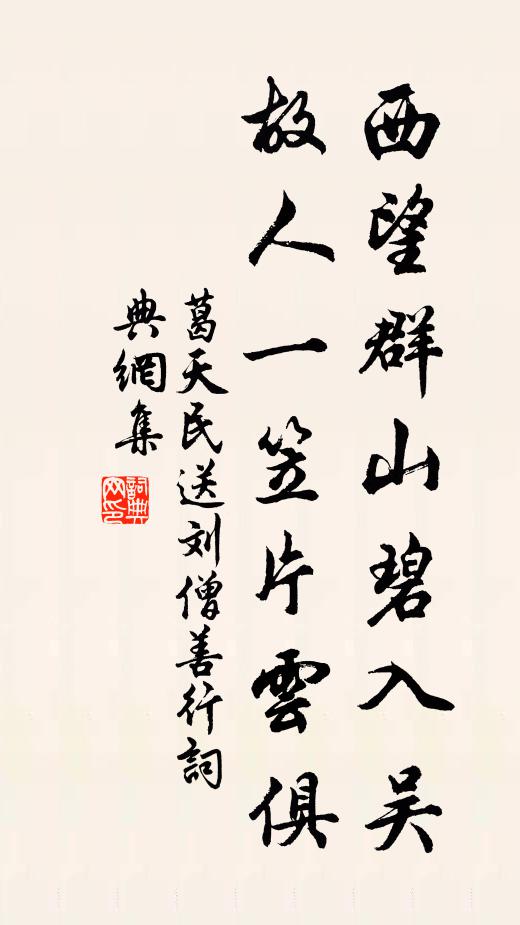 西望群山碧入吴
故人一笠片雲俱
葛天民送刘僧善行詞
典網集
詞典網印